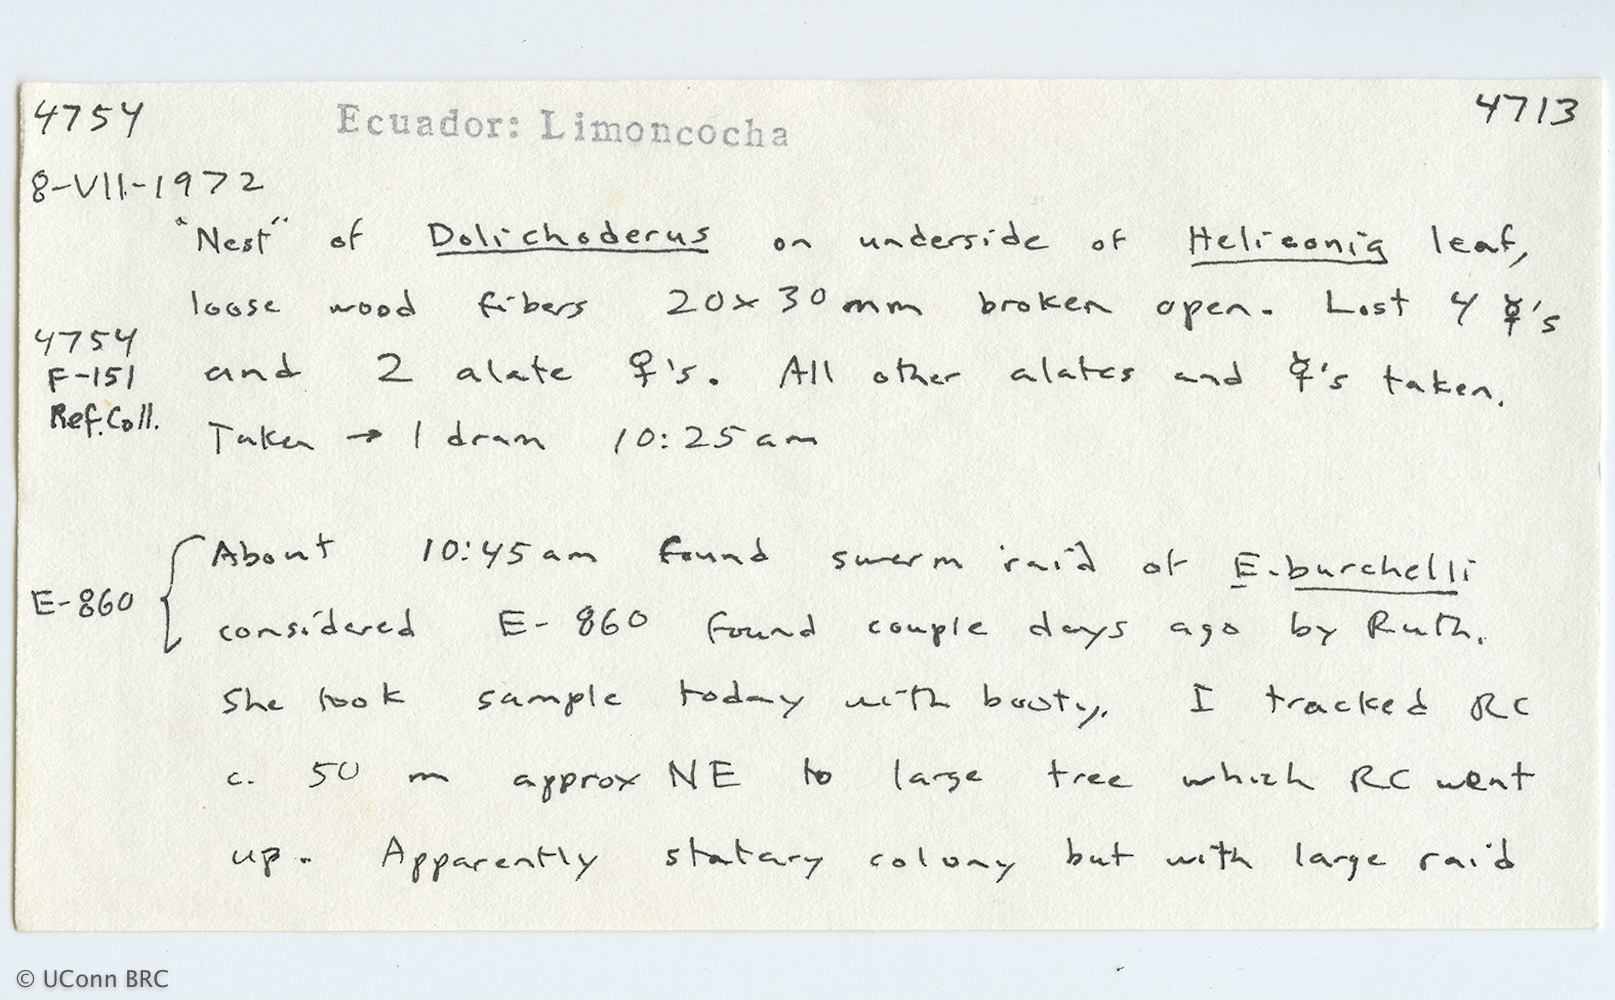 4754 Ecuador: Limoncocha 4713
8-VII-1972
"Nest" of Dolichoderus on underside of Heliconia leaf,
loose wood fibers 20x30mm broken open. Lost 4 ☿'s
4754
F-151
Ref. Coll.
and 2 alate ♀'s. All other alates and ☿'s taken.
Taken → 1 dram 10:25am
E-860
About 10:45am found swarm raid of E. burchelli
considered E-860 found couple days ago by Ruth.
She took sample today with booty. I tracked RC
c. 50 m approx NE to large tree which RC went
up. Apparently statary colony but with large raid
© UConn BRC